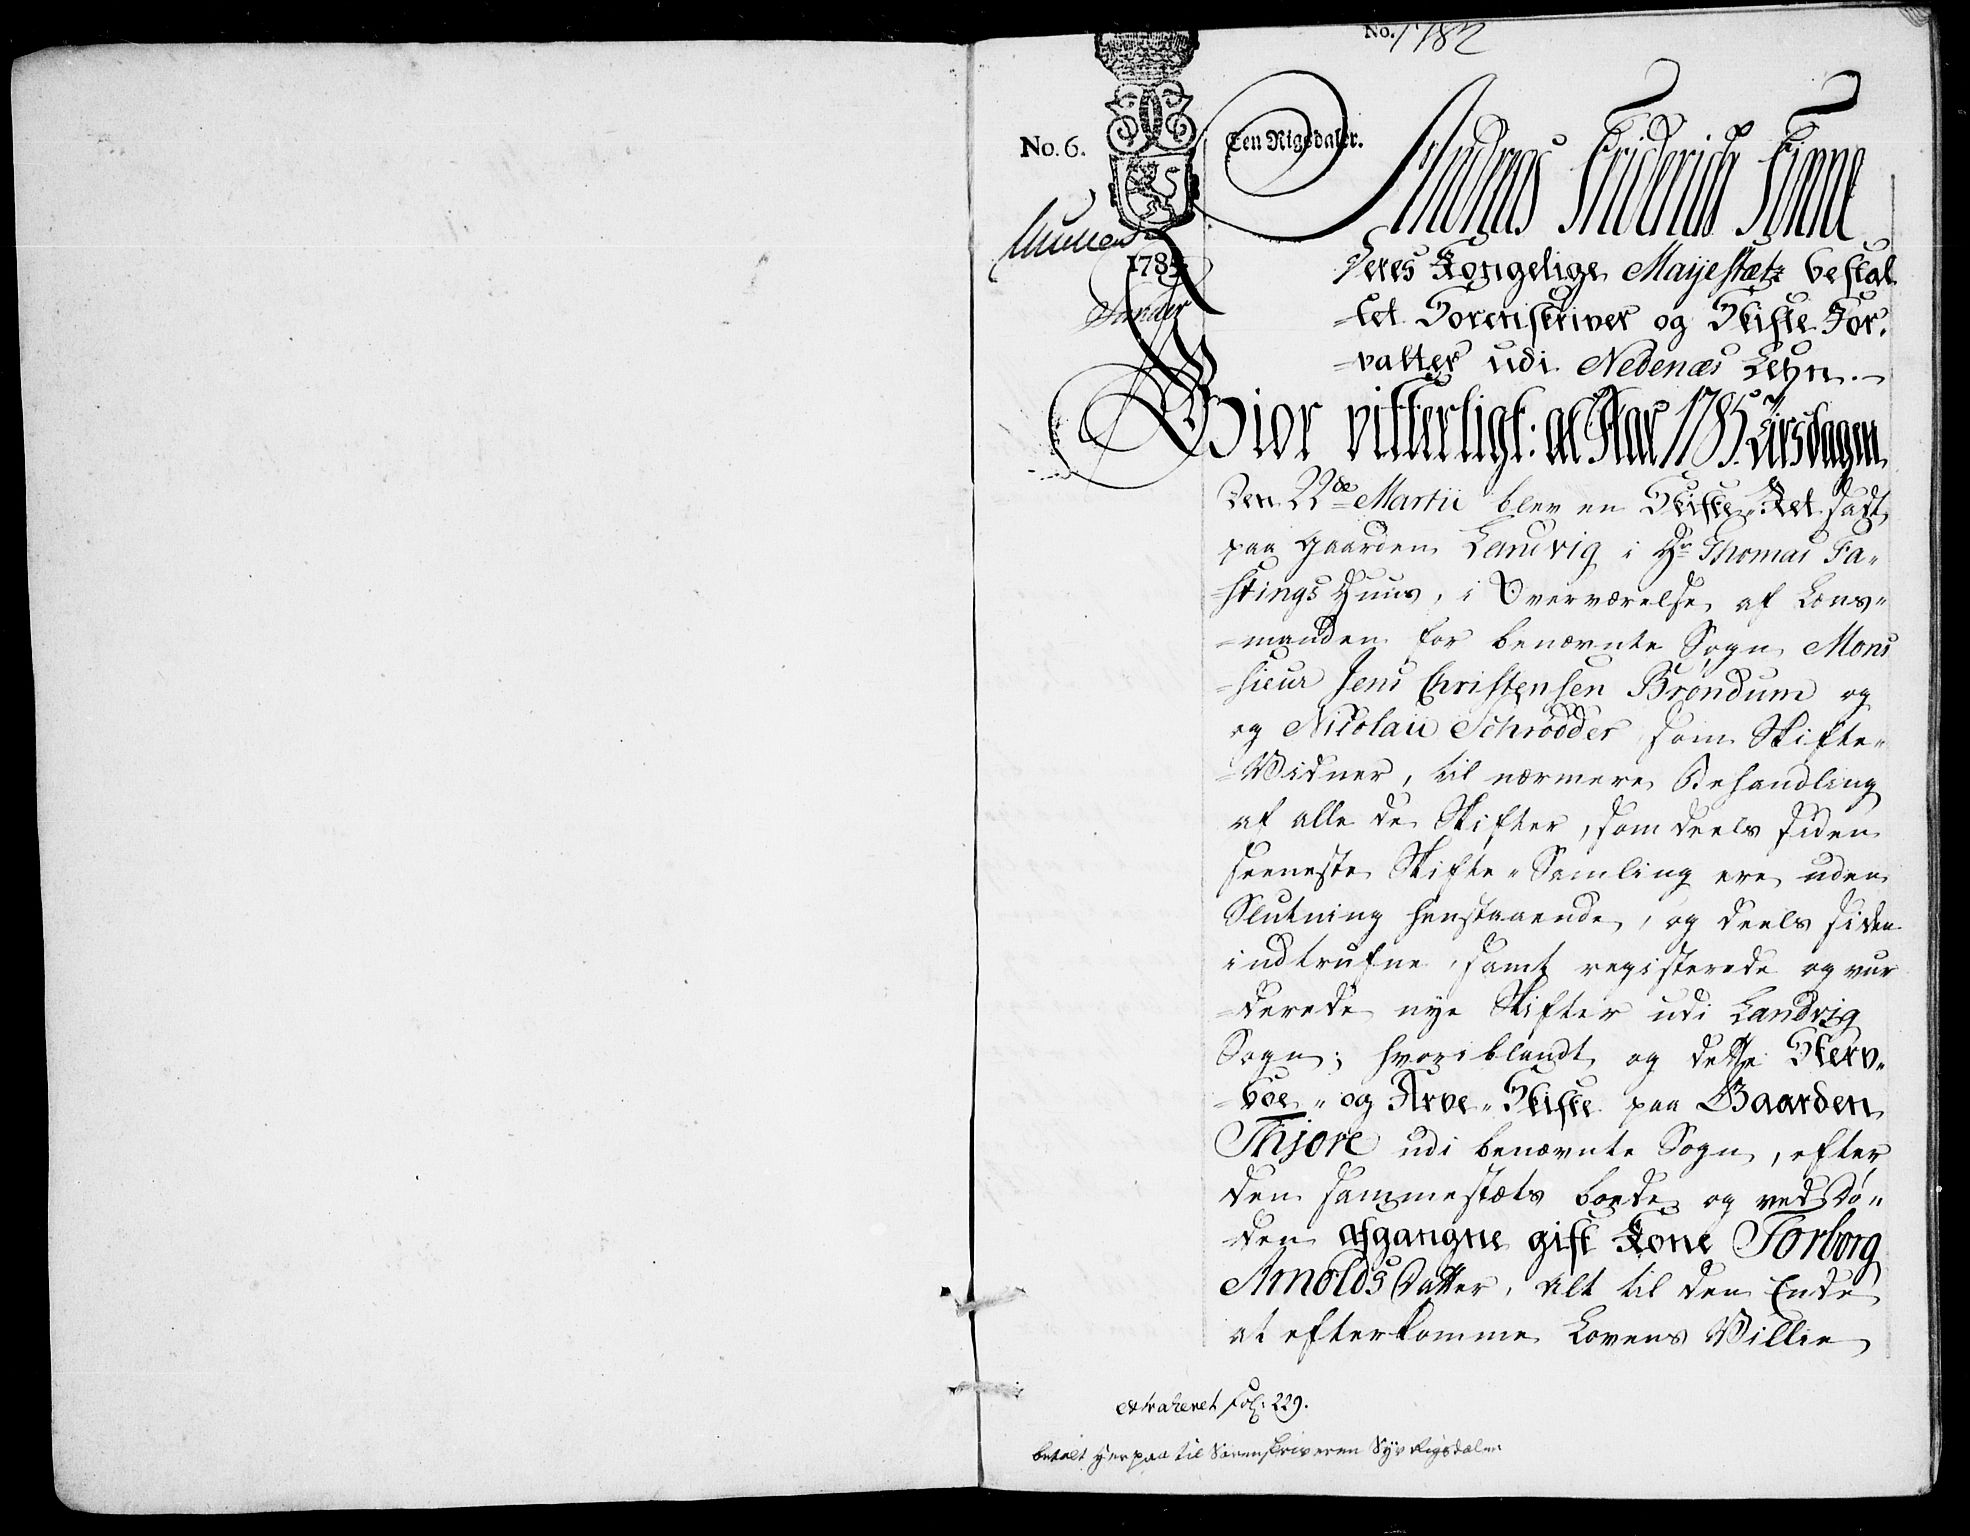 No. 1782
No. 6.
Een Rigsdaler.
1785
Andreas Friderich Finne
Deres Kongelige Mayestætz bestal
=tet Sorenskriver og Skifte For-
=valter udi Nedenæs Lehn.
Giør vitterligt: at Aar 1785. Tirsdagen
Den 22de Martii blev en Skifte-Ret sadt
paa Gaarden Landvig i Hr Thomas Fa-
=stings Huus, i Overværelse af Lens-
=manden for benævnte Sogn Mons
=sieur Jens Christensen Brøndum og
og Nicolai Schrødder som Skifte-
=Vidner, til nærmere Behandling
af alle de Skifter, som deels siden
seeneste Skifte-Samling ere uden
Slutning henstaaende, og deels siden
indtrufne, samt registerede og vur
=derede nye Skifter udi Landvig
Sogn; hvoriblandt og dette Sterv-
=boe- og Arve-Skifte paa Gaarden
Thjore udi benævnte Sogn, efter
den sammestæts boede og ved Dø-
=den afgangne gift Kone Torborg
Arnolds Datter, Alt til den Ende
at efterkomme Lovens Villie
extraheret Fol: 229.
betalt herpaa til Sorenskriveren Syv Rigsdaler